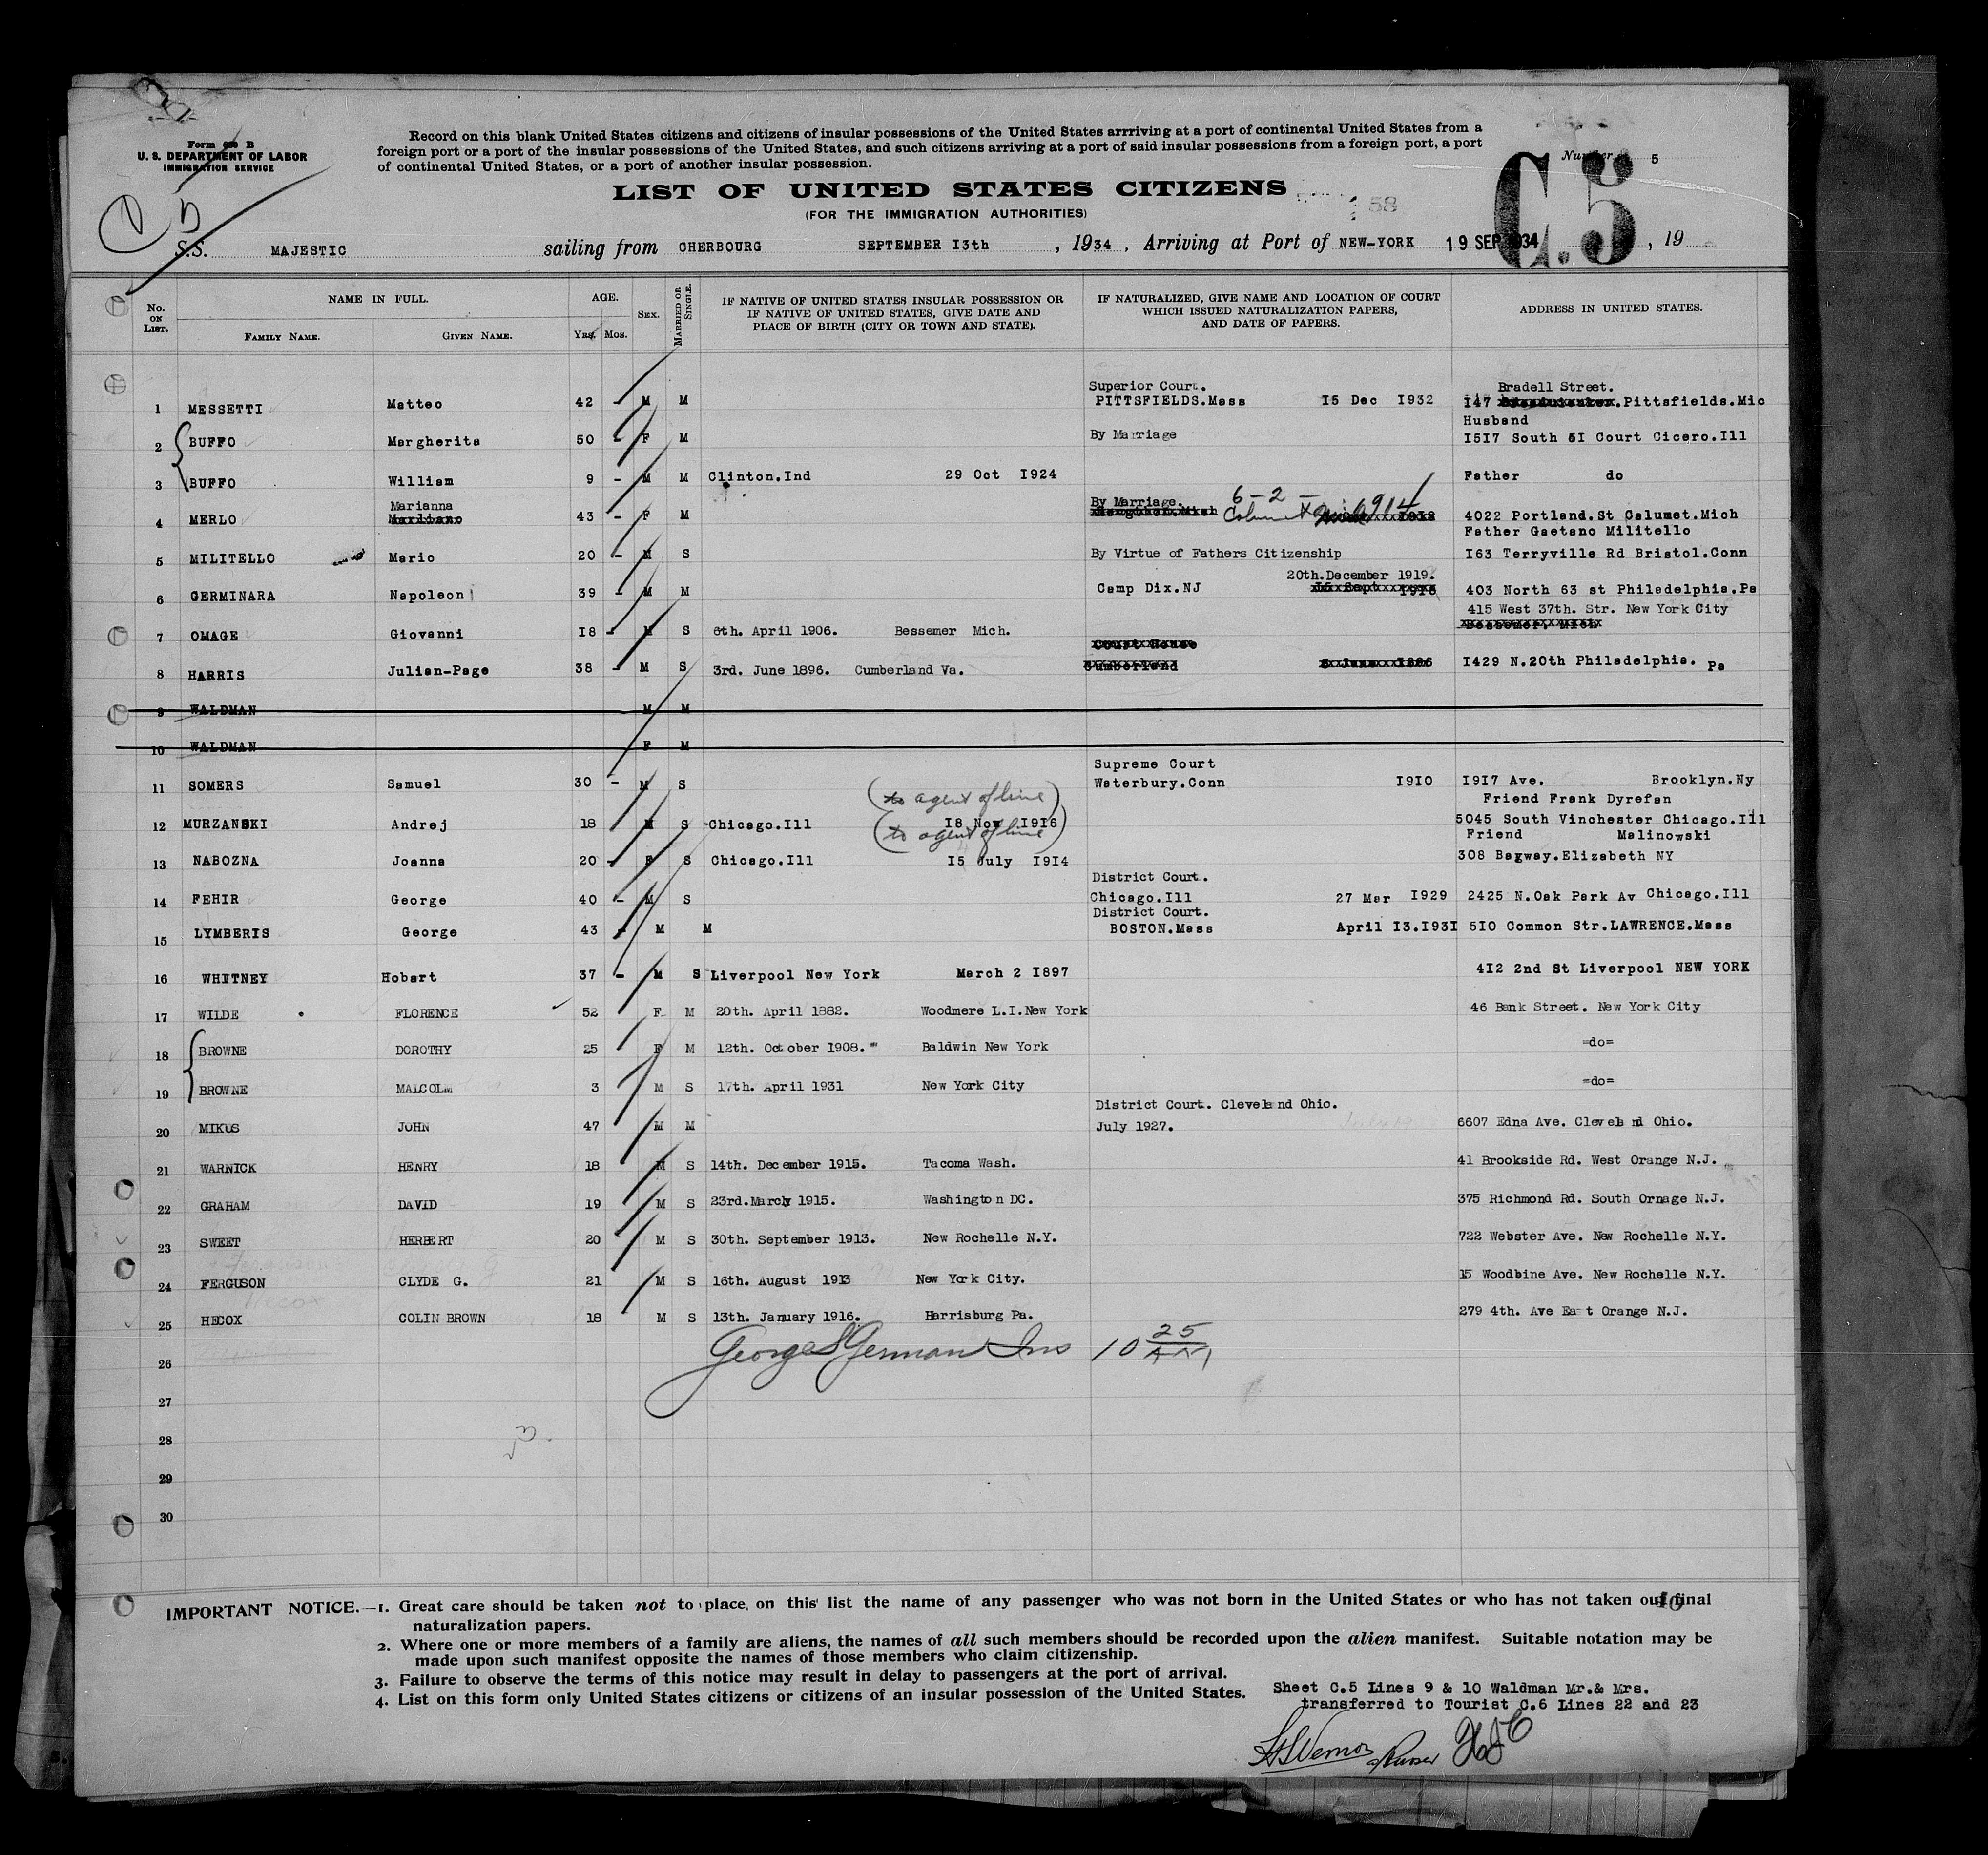 Form 630 B
U. S. DEPARTMENT OF LABOR
IMMIGRATION SERVICE
Record on this blank United States citizens and citizens of insular possessions of the United States arrriving at a port of continental United States from a
foreign port or a port of the insular possessions of the United States, and such citizens arriving at a port of said insular possessions from a foreign port, a port
of continental United States, or a port of another insular possession.
Number 5
C.5
LIST OF UNITED STATES CITIZENS
58
(FOR THE IMMIGRATION AUTHORITIES)
S.S. MAJESTIC sailing from CHERBOURG SEPTEMBER I3th , 1934 , Arriving at Port of NEW-YORK 19 SEP 1934 , 19
No. ON LIST.
NAME IN FULL.
FAMILY NAME. GIVEN NAME.
AGE.
Yrs. Mos.
SEX.
MARRIED OR SINGLE.
IF NATIVE OF UNITED STATES INSULAR POSSESSION OR
IF NATIVE OF UNITED STATES, GIVE DATE AND
PLACE OF BIRTH (CITY OR TOWN AND STATE).
IF NATURALIZED, GIVE NAME AND LOCATION OF COURT
WHICH ISSUED NATURALIZATION PAPERS,
AND DATE OF PAPERS.
ADDRESS IN UNITED STATES.
Superior Court. Bradell Street.
1 MESSETTI Matteo 42 - M M PITTSFIELDS.Mass I5 Dec I932 I47 .Pittsfields.Mic
Husband
2 BUFFO Margherita 50 - F M By Marriage I5I7 South 5I Court Cicero.Ill
3 BUFFO William 9 - M M Clinton.Ind 29 Oct I924 Father do
Marianna By Marriage. 6-2-1914
4 MERLO Marliano 43 - F M Calumet Mich 4022 Portland.St Calumet.Mich
Father Gaetano Militello
5 MILITELLO Mario 20 - M S By Virtue of Fathers Citizenship I63 Terryville Rd Bristol.Conn
20th.December 1919.
6 GERMINARA Napoleon 39 - M M Camp Dix.NJ I5 Sept I918 403 North 63 st Philadelphia.Pa
415 West 37th. Str. New York City
7 OMAGE Giovanni I8 - M S 6th. April 1906. Bessemer Mich. Bessemer. Mich
Court House
8 HARRIS Julian-Page 38 - M S 3rd. June 1896. Cumberland Va. Cumberland I429 N.20th Philadelphia. Pa
9 WALDMAN M M
10 WALDMAN F M
Supreme Court
11 SOMERS Samuel 30 - M S Waterbury.Conn I9I0 I9I7 Ave. Brooklyn.Ny
(to agent of line) Friend Frank Dyrefan
12 MURZANSKI Andrej 18 M S Chicago.Ill I8 Nov I9I6 5045 South Vinchester Chicago.Ill
(to agent of line) Friend Malinowski
13 NABOZNA Joanna 20 - F S Chicago.Ill I5 July I9I4 308 Bagway.Elizabeth NY
District Court.
14 FEHIR George 40 - M S Chicago.Ill 27 Mar I929 2425 N.Oak Park Av Chicago.Ill
District Court.
15 LYMBERIS George 43 - M M BOSTON.Mass April I3.I93I 5I0 Common Str.LAWRENCE.Mass
16 WHITNEY Hobart 37 - M S Liverpool New York March 2 I897 4I2 2nd St Liverpool NEW YORK
17 WILDE FLORENCE 52 F M 20th. April 1882. Woodmere L.I.New York 46 Bank Street. New York City
18 BROWNE DOROTHY 25 F M 12th. October 1908. Baldwin New York =do=
19 BROWNE MALCOLM 3 M S 17th. April 1931 New York City =do=
District Court. Cleveland Ohio.
20 MIKUS JOHN 47 M M July 1927. 6607 Edna Ave. Cleveland Ohio.
21 WARNICK HENRY 18 M S 14th. December 1915. Tacoma Wash. 41 Brookside Rd. West Orange N.J.
22 GRAHAM DAVID 19 M S 23rd.March 1915. Washington DC. 375 Richmond Rd. South Ornage N.J.
23 SWEET HERBERT 20 M S 30th. September 1913. New Rochelle N.Y. 722 Webster Ave. New Rochelle N.Y.
24 FERGUSON CLYDE G. 21 M S 16th. August 1913 New York City. 15 Woodbine Ave. New Rochelle N.Y.
25 HECOX COLIN BROWN 18 M S 13th. January 1916. Harrisburg Pa. 279 4th. Ave Eat Orange N.J.
George S German Ins 10 25 AM
26
27
28
29
30
IMPORTANT NOTICE.—1. Great care should be taken not to place, on this list the name of any passenger who was not born in the United States or who has not taken out final
naturalization papers.
2. Where one or more members of a family are aliens, the names of all such members should be recorded upon the alien manifest. Suitable notation may be
made upon such manifest opposite the names of those members who claim citizenship.
3. Failure to observe the terms of this notice may result in delay to passengers at the port of arrival.
4. List on this form only United States citizens or citizens of an insular possession of the United States.
Sheet C.5 Lines 9 & 10 Waldman Mr.& Mrs.
transferred to Tourist C.6 Lines 22 and 23